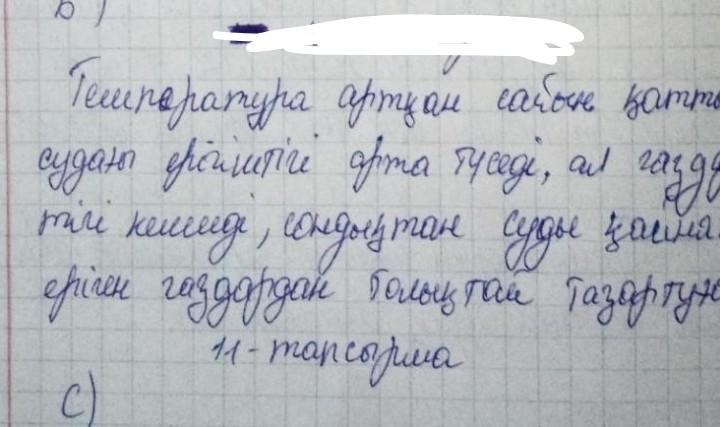 b)
Температура артқан сайын қатты
судағы ерігіштігі арта түседі, ал газда
тігі кемиді, сондықтан суды қайна
еріген газдардан толықтай тазартуға
11-тапсырма
c)